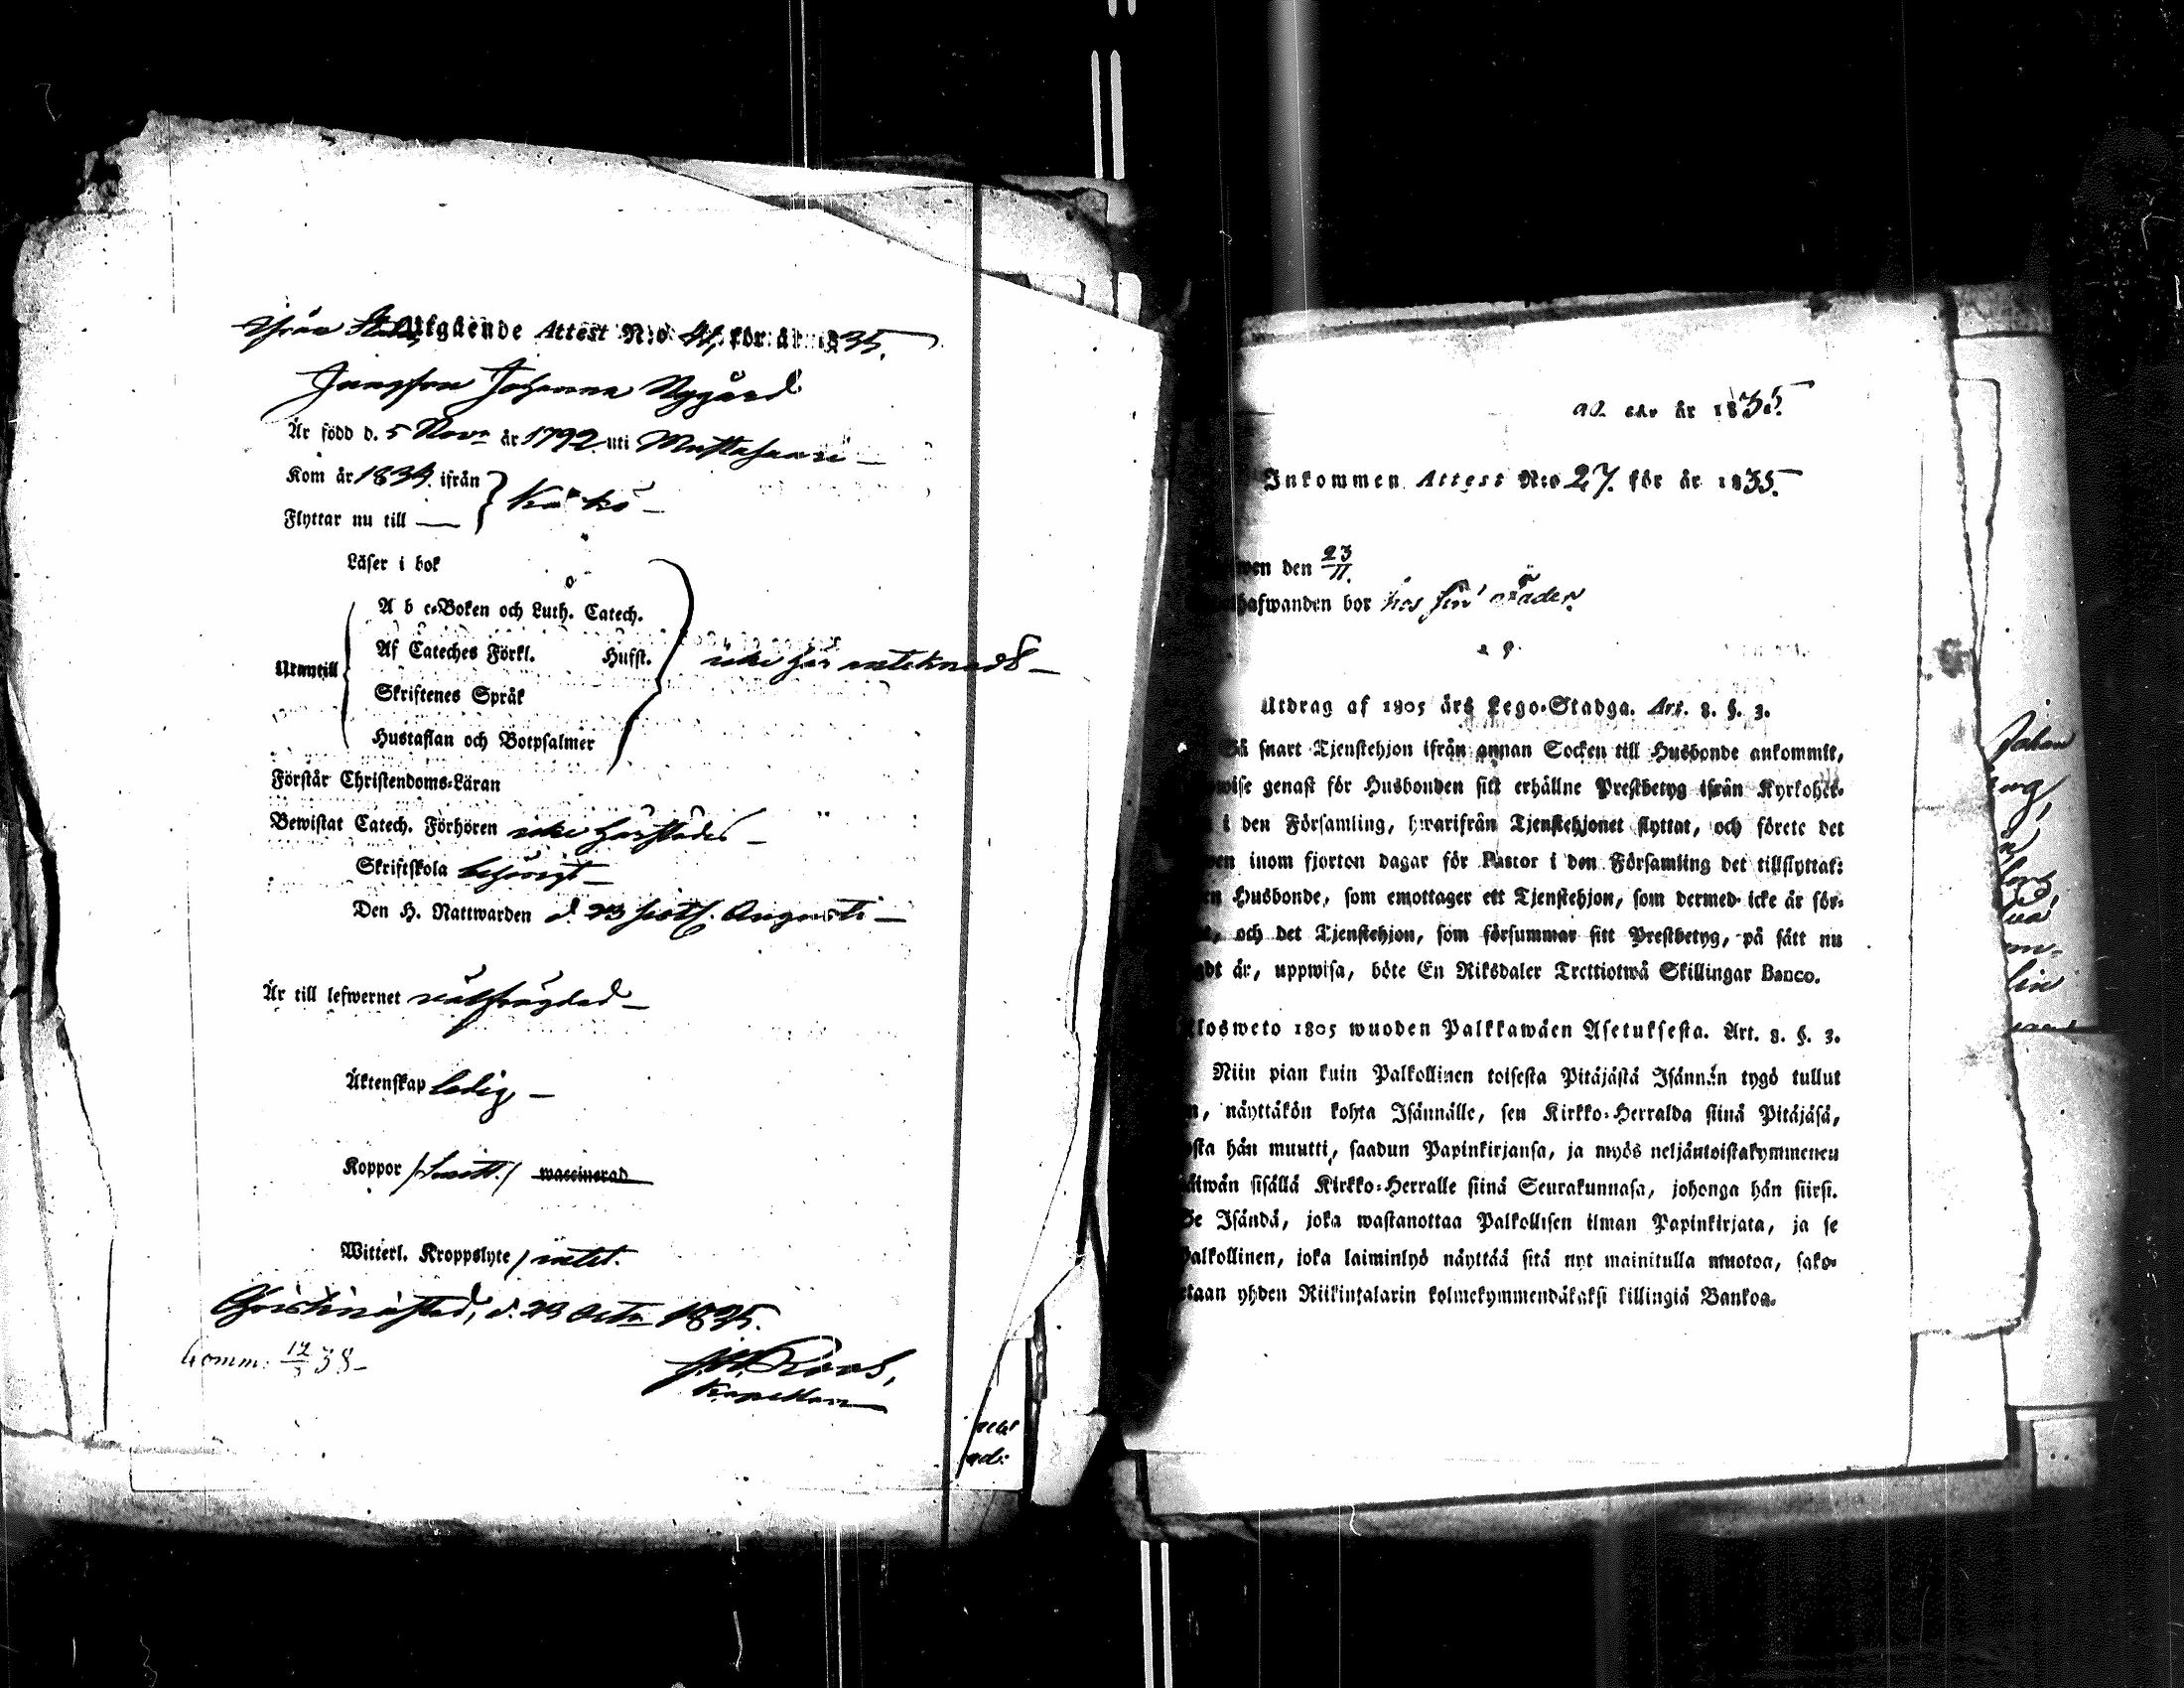 ifrån Staden Utgående Attest N:o 41, för år 1835.
Jungfrun Johanna Nygård
Är född d. 5 Novr år 1792 uti Mustasaari
Kom år 1834 ifrån
Flyttar nu till — Kaskö
Läser i bok
A b c-Boken och Luth. Catech.
Af Cateches Förkl. Hufst.
Utantill icke här antecknadt
Skriftenes Språk
Hustaflan och Botpsalmer
Förstår Christendoms-Läran
Bewistat Catech. Förhören icke härstädes
Skriftskola behörigt
Den H. Nattwarden d. 23 sistl. Augusti
Är till lefwernet välfrägdad
Äktenskap ledig
Koppor /haft./ waccinerad
Witterl. Kroppslyte / intet.
Christinæstad, d. 23 Octr 1835.
Roos,
Kapellan
år 1835
Inkommen Attest N:o 27. för år 1835.
den 23/11.
hafwanden bor hos sin
Utdrag af 1805 års Lego-Stadga. Art. 8. §. 3.
Så snart Tjenstehjon ifrån annan Socken till Husbonde ankommit,
wise genast för Husbonden sitt erhållne Prestbetyg ifrån Kyrkoher-
i den Församling, hwarifrån Tjenstehjonet flyttat, och förete det
wen inom fjorton dagar för Pastor i den Församling det tillflyttat:
en Husbonde, som emottager ett Tjenstehjon, som dermed icke är för-
, och det Tjenstehjon, som försummar sitt Prestbetyg, på sått nu
gdt är, uppwisa, böte En Riksdaler Trettiotwå Skillingar Banco.
losweto 1805 wuoden Palkkawäen Asetuksesta. Art. 8. §. 3.
Niin pian kuin Palkollinen toisesta Pitäjästä Isännän tygö tullut
n, näyttäkön kohta Isännälle, sen Kirkko-Herralda siinä Pitäjäsä,
sta hän muutti, saadun Papinkirjansa, ja myös neljäntoistakymmenen
äiwän sisällä Kirkko-Herralle siinä Seurakunnasa, johonga hän siirsi.
Se Isändä, joka wastanottaa Palkollisen ilman Papinkirjata, ja se
Palkollinen, joka laiminlyö näyttää sitä nyt mainitulla muotoa, sako-
etaan yhden Riikintalarin kolmekymmendäkaksi killingiä Bankoa.